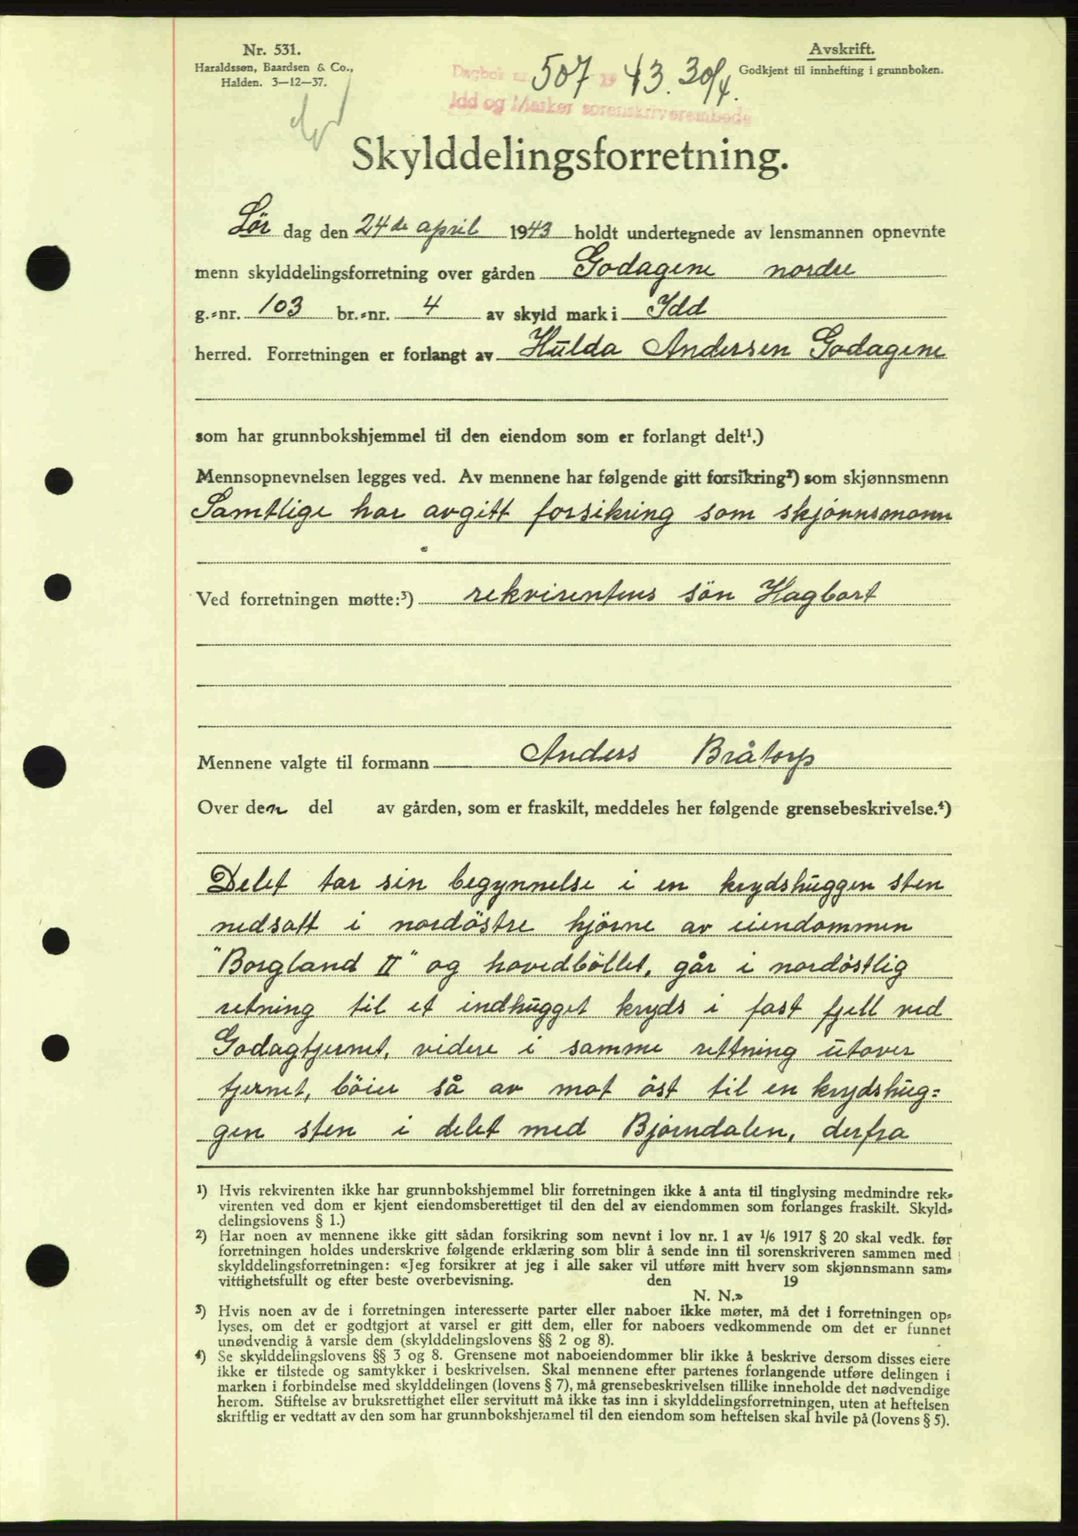 Nr. 531.
Haraldssøn, Baardsen & Co.,
Halden. 3—12—37.
Avskrift.
Godkjent til innhefting i grunnboken.
Dagbok nr. 507 19 43. 30/4.
Idd og Marker sorenskriverembede
Skylddelingsforretning.
Lör dag den 24de april 1943 holdt undertegnede av lensmannen opnevnte
menn skylddelingsforretning over gården Godagene nordre
g.-nr. 103 br.-nr. 4 av skyld mark i Idd
herred. Forretningen er forlangt av Hulda Andersen Godagene
som har grunnbokshjemmel til den eiendom som er forlangt delt¹.)
Mennsopnevnelsen legges ved. Av mennene har følgende gitt forsikring²) som skjønnsmenn
Samtlige har avgitt forsikring som skjönnsmenn
Ved forretningen møtte:³) rekvirentens sön Hagbart
Mennene valgte til formann Anders Bråtorp
Over den del av gården, som er fraskilt, meddeles her følgende grensebeskrivelse.⁴)
Delet tar sin begynnelse i en krydshuggen sten
nedsatt i nordöstre hjörne av eiendommen
"Borgland II" og hovedböllet, går i nordöstlig
retning til et indhugget kryds i fast fjell ved
Godagtjernet, videre i samme rettning utover
tjernet, böier så av mot öst til en krydshug=
gen sten i delet med Bjørndalen, derfra
¹) Hvis rekvirenten ikke har grunnbokshjemmel blir forretningen ikke å anta til tinglysing medmindre rek-
virenten ved dom er kjent eiendomsberettiget til den del av eiendommen som forlanges fraskilt. Skyld-
delingslovens § 1.)
²) Har noen av mennene ikke gitt sådan forsikring som nevnt i lov nr. 1 av 1/6 1917 § 20 skal vedk. før
forretningen holdes underskrive følgende erklæring som blir å sende inn til sorenskriveren sammen med
skylddelingsforretningen: «Jeg forsikrer at jeg i alle saker vil utføre mitt hverv som skjønnsmann sam-
vittighetsfullt og efter beste overbevisning. den 19
N. N.»
³) Hvis noen av de i forretningen interesserte parter eller naboer ikke møter, må det i forretningen op-
lyses, om det er godtgjort at varsel er gitt dem, eller for naboers vedkommende om det er funnet
unødvendig å varsle dem (skylddelingslovens §§ 2 og 8).
⁴) Se skylddelingslovens §§ 3 og 8. Grensene mot naboeiendommer blir ikke å beskrive dersom disses eiere
ikke er tilstede og samtykker i beskrivelsen. Skal mennene efter partenes forlangende utføre delingen i
marken i forbindelse med skylddelingen (lovens § 7), må grensebeskrivelsen tillike inneholde det nødvendige
herom. Stiftelse av bruksrettighet eller servitutt må ikke tas inn i skylddelingsforretningen, uten at heftelsen
skriftlig er vedtatt av den som har grunnbokshjemmel til den eiendom som heftelsen skal hvile på (lovens § 5).